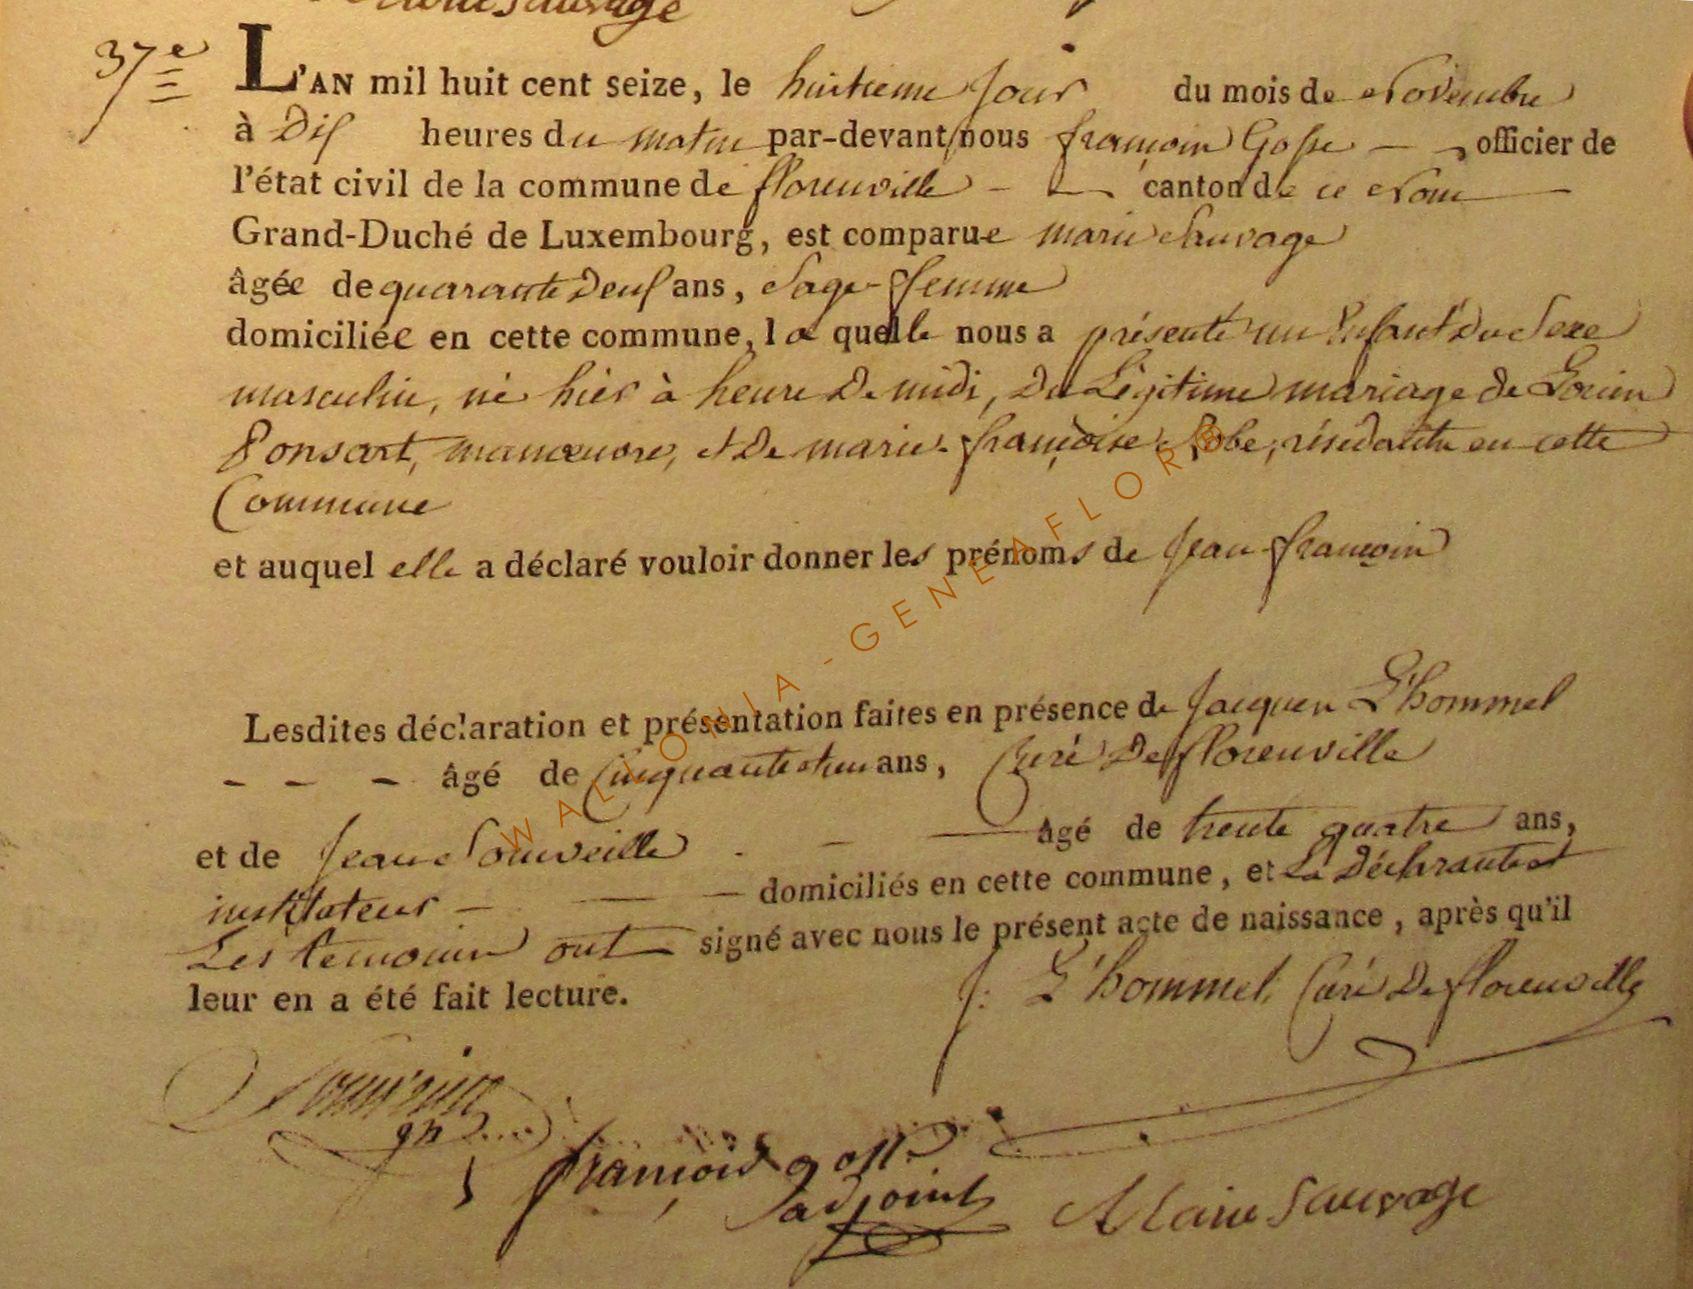 Sauvage
37e
L'AN mil huit cent seize, le huitieme jour du mois de Novembre
à Dix heures du matin par-devant nous françois Gosse officier de
l'état civil de la commune de florenville canton de ce Nom
Grand-Duché de Luxembourg, est comparue marie Sauvage
âgée de quarante Deux ans, Sage-femme
domiciliée en cette commune, la quelle nous a présenté un Enfant Du Sexe
masculin, né hier à heure De midi, Du Légitime mariage de Louis
Ponsart, manœuvre, et De marie-françoise Robe, résidante en cette
Commune
et auquel elle a déclaré vouloir donner les prénoms de Jean-françois
Lesdites déclaration et présentation faites en présence de Jacques L'hommel
âgé de Cinquante et un ans, Curé De florenville
et de Jean Souveille âgé de trente quatre ans,
instituteur domiciliés en cette commune, et La Déclarante et
Les temoins ont signé avec nous le présent acte de naissance, après qu'il
leur en a été fait lecture.
J: L'hommel, Curé De florenville
françois gosse
adjoint
Marie Sauvage
WALLONIA-GENEAFLORE